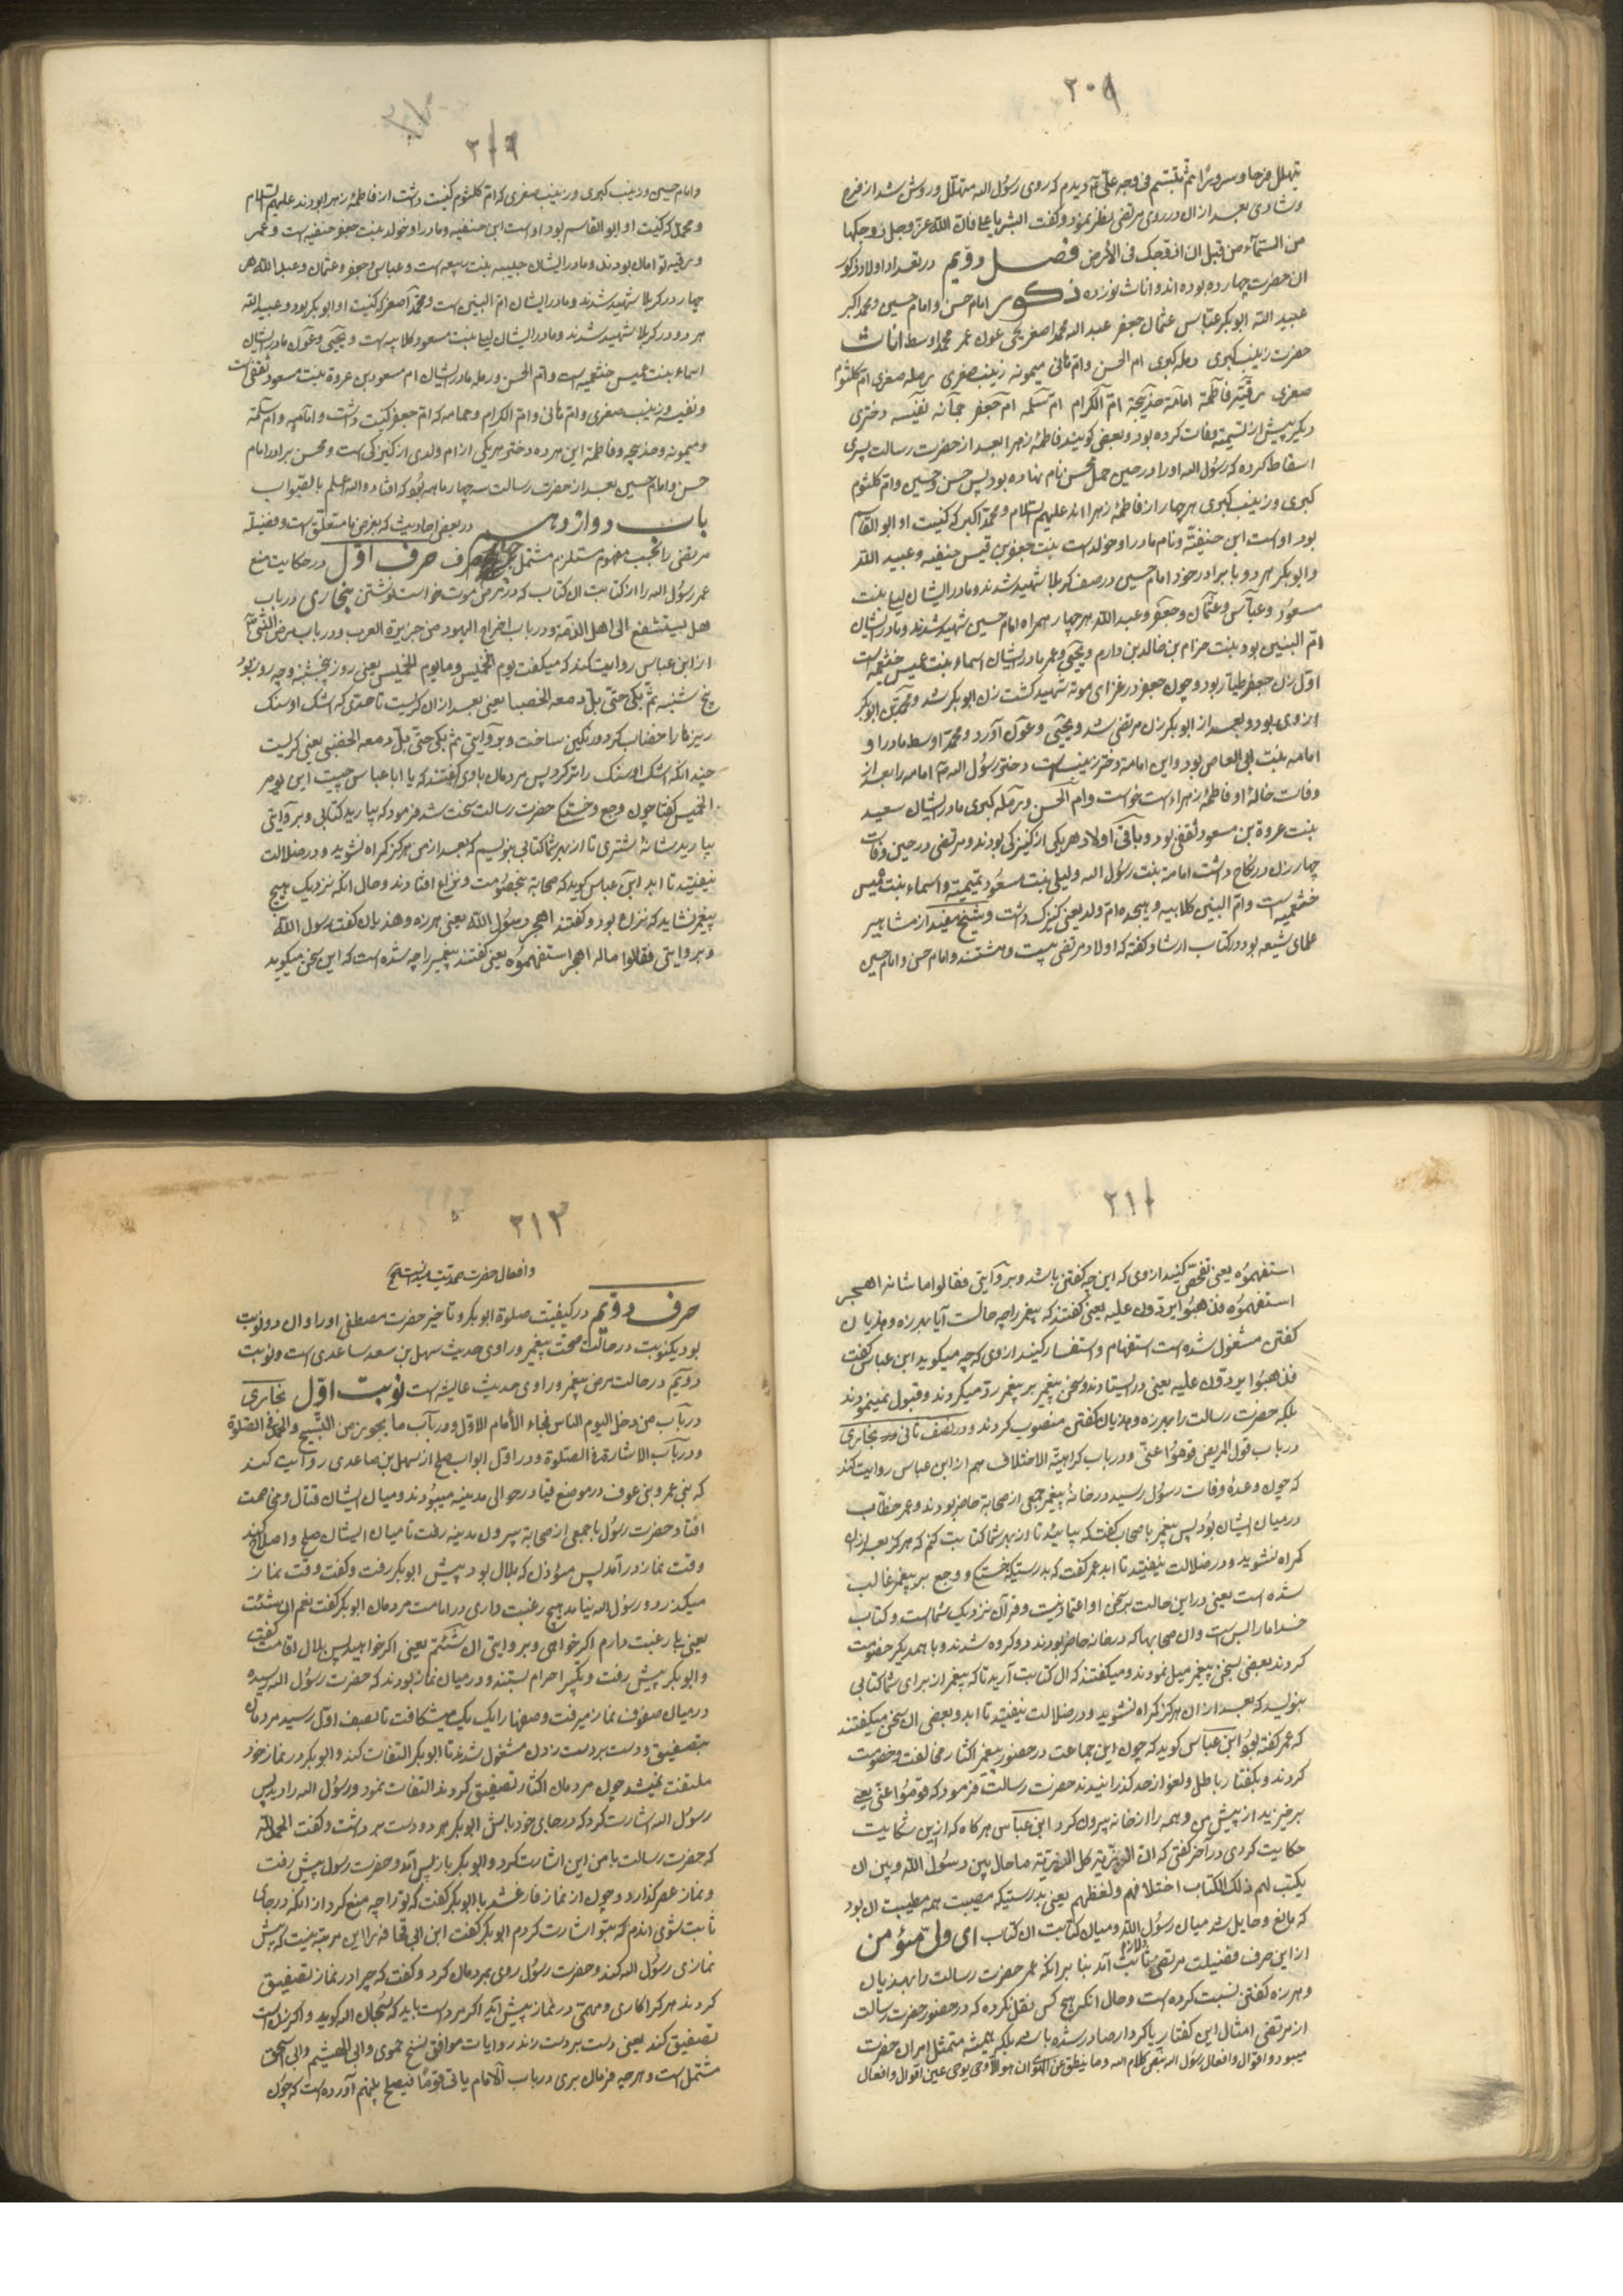 ۲۰۹
یتهلل فرحا وسرورا ثم تبسم فی وجه علی دیدم که روی رسول الله متهلل وروشن شد از فرح
وشادی بعد از ان در روی مرتضی نظر نمود وکفت ابشر یا علی فان الله عز وجل زوجکها
من السمآء من قبل ان ازوجک فی الأرض فصل دویم در تعداد اولاد ذکور
ان حضرت چهارده بوده اند واناث نوزده ذکور امام حسن وامام حسین ومحمد اکبر
عبید الله ابوبکر عباس عثمان جعفر عبد الله محمد اصغر یحیی عون عمر محمد اوسط اناث
حضرت زینب کبری رمله کبری ام الحسن وام هانی میمونه زینب صغری رمله صغری ام کلثوم
صغری رقیه فاطمة امامة خدیجة ام الکرام ام سلمه ام جعفر جمانه نفیسه دختری
دیکر پیش از تسمیته وفات کرده بود وبعضی کویند فاطمهٔ زهرا بعد از حضرت رسالت پسری
اسقاط کرده که رسول الله اورا در حین حمل محسن نام نهاده بود پس حسن وحسین وام کلثوم
کبری وزینب کبری هر چهار از فاطمهٔ زهرا اند علیهم السلام ومحمد اکبر که کنیت او ابو القاسم
بود اوست ابن حنفیة ونام مادر او خوله است بنت جعفر بن قیس حنفیه وعبید الله
وابوبکر هر دو با برادر خود امام حسین در صف کربلا شهید شدند ومادر ایشان لیلی بنت
مسعود وعباس وعثمان وجعفر وعبد الله هر چهار همراه امام حسین شهید شدند ومادر ایشان
ام البنین بود بنت حزام بن خالد بن دارم ویحیی وعمر مادر ایشان اسماء بنت عمیس خثعمیه است
اول زن جعفر طیار بود وچون جعفر در غزای موته شهید کشت زن ابوبکر شد ومحمد بن ابوبکر
از وی بود وبعد از ابوبکر زن مرتضی شد ویحیی وعون آورد ومحمد اوسط مادر او
امامه بنت ابی العاص بود واین امامة دختر زینب است دختر رسول الله امامه را بعد از
وفات خالهٔ او فاطمهٔ زهراء است خواست وام الحسن ورمله کبری مادر ایشان سعید
بنت عروة بن مسعود ثقفی بود وباقی اولاد هر یکی از کنیزکی بودند ومرتضی در حین وفات
چهار زن در نکاح داشت امامة بنت رسول الله ولیلی بنت مسعود تمیمیه واسماء بنت عمیس
خثعمیه است وام البنین کلابیه وهیجده ام ولد یعنی کنیزک داشت وشیخ مفید از مشاهیر
علمای شیعه بود در کتاب ارشاد کفته که اولاد مرتضی بیست وهشتند وامام حسن وامام حسین
وامام حسین وزینب کبری وزینب صغری که ام کلثوم کنیت داشت از فاطمهٔ زهرا بودند علیهم السلام
ومحمد که کنیت او ابو القاسم بود اوست ابن حنفیه ومادر او خوله بنت جعفر حنفیه است وعمر
ورقیه توامان بودند ومادر ایشان حبیبه بنت ربیعه است وعباس وجعفر وعثمان وعبد الله هر
چهار در کربلا شهید شدند ومادر ایشان ام البنین است ومحمد اصغر که کنیت او ابوبکر بود وعبید الله
هر دو در کربلا شهید شدند ومادر ایشان لیلی بنت مسعود کلابیه است ویحیی وعون مادر ایشان
اسماء بنت عمیس خثعمیه است وام الحسن ورمله مادر ایشان ام مسعود بن عروة بنت مسعود ثقفی است
ونفیسه وزینب صغری وام هانی وام الکرام وجمامه که ام جعفر کنیت داشت وامامه وام سلمة
ومیمونه وخدیجه وفاطمه این هر ده دختر هر یکی از ام ولدی از کنیزکی است ومحسن برادر امام
حسن وامام حسین بعد از حضرت رسالت سه چهار ماهه بود که افتاد والله اعلم بالصواب
باب دوازدهم در بعض احادیث که بغرض ما متعلق است وفضیلة
مرتضی را بحسب مفهوم مستلزم مشتمل چهار حرف حرف اول در حکایت منع
عمر رسول الله را از کتابت ان کتاب که در مرض موت خواست نوشتن بخاری در باب
هل یستشفع الی اهل الذمة ودر باب اخراج الیهود من جزیرة العرب ودر باب مرض النبی
از ابن عباس روایت کند که میکفت یوم الخمیس وما یوم الخمیس یعنی روز پنجشنبه وچه روز بود
پنج شنبه ثم بکی حتی بل دمعه الحصبا یعنی بعد از ان کریست تا حدی که اشک او سنک
ریزها را خضاب کرد ورنکین ساخت وبروایتی ثم بکی حتی بل دمعه الحصی یعنی کریست
چندانکه اشک او سنک را تر کرد پس مردمان باوی کفتند که یا ابا عباس چیست این یوم
الخمیس کفتا چون وجع وخستکی حضرت رسالت سخت شد فرمود که بیارید کتابی وبروایتی
بیارید شانهٔ اشتری تا از بهر شما کتابی بنویسم که بعد از من هرکز کمراه نشوید ودر ضلالت
نیفتید تا ابد ابن عباس کوید که صحابه بخصومت ونزاع افتادند وحال انکه نزدیک هیچ
پیغمبر نشاید که نزاع بود وکفتند اهجر رسول الله یعنی هرزه وهذیان کفت رسول الله
وبروایتی فقالوا ماله اهجر استفهموه یعنی کفتند پیغمبر را چه شده است که این سخن میکوید
۲۱۱
استفهموه یعنی تفحص کنید از وی که این چه کفتن باشد وبروایتی فقالوا ما شانه اهجر
استفهموه فذهبوا یردون علیه یعنی کفتند که پیغمبر را چه حالت آیا بهرزه وهذیان
کفتن مشغول شده است استفهام واستفسار کنید از وی که چه میکوید ابن عباس کفت
فذهبوا یردون علیه یعنی در ایستادند وسخن پیغمبر بر پیغمبر رد میکردند وقبول نمینمودند
بلکه حضرت رسالت را بهرزه وهذیان کفتن منصوب کردند ودر نصف ثانی بخاری
در باب قول المریض قوموا عنی ودر باب کراهیة الاختلاف هم از ابن عباس روایت کند
که چون وعدهٔ وفات رسول رسید در خانهٔ پیغمبر جمعی از صحابة حاضر بودند وعمر خطاب
در میان ایشان بود پس پیغمبر با صحاب کفت که بیائید تا از بهر شما کتابت کنم که هرکز بعد از ان
کمراه نشوید ودر ضلالت نیفتید تا ابد عمر کفت که بدرستیکه خستکی ووجع بر پیغمبر غالب
شده است یعنی در این حالت بر سخن او اعتماد نیست وقرآن نزدیک شما است وکتاب
خدا ما را بس است وان صحابها که در خانه حاضر بودند دو کروه شدند وبا همدیکر خصومت
کردند بعضی بسخن پیغمبر میل نمودند ومیکفتند که ان کتابت آرید تا که پیغمبر از برای شما کتابی
بنویسد که بعد از ان هرکز کمراه نشوید ودر ضلالت نیفتید تا ابد وبعضی ان سخن میکفتند
که عمر کفته بود ابن عباس کوید که چون این جماعت در حضور پیغمبر اکثار مخالفت وخصومت
کردند وبکفتار باطل ولغو از حد کذرانیدند حضرت رسالت فرمود که قوموا عنی یعنی
برخیزید از پیش من وهمه را از خانه بیرون کرد ابن عباس هرکاه که ازین شکایت
حکایت کردی در آخر کفتی که ان الرزیة کل الرزیة ما حال بین رسول الله وبین ان
یکتب لهم ذلک الکتاب اختلافهم ولغطهم یعنی بدرستیکه مصیبت همه مصیبت ان بود
که مانع وحایل شد میان رسول الله ومیان کتابت ان کتاب ای ولی مؤمن
از این حرف فضیلت مرتضی ثابت آمد بنا برانکه عمر حضرت رسالت را بهذیان
وهرزه کفتن نسبت کرده است وحال انکه هیچ کس نقل نکرده که در حضور حضرت رسالت
از مرتضی امثال این کفتار یا کردار صادر شده باشد بلکه همیشه متمثل امر ان حضرت
میبود واقوال وافعال رسول الله بنص کلام الله وما ینطق عن الهوی ان هو الا وحی یوحی عین اقوال وافعال
۲۱۳
وافعال حضرت صمدیت میدانست
حرف دویم در کیفیت صلوة ابوبکر وتاخیر حضرت مصطفی اورا وان دو نوبت
بود یکنوبت در حالت صحت پیغمبر وراوی حدیث سهل بن سعد ساعدی است ونوبت
دویم در حالت مرض پیغمبر وراوی حدیث عایشه است نوبت اول بخاری
در باب من دخل لیوم الناس فجاء الأمام الاول ودر باب ما یجوز من التسبیح والحمد فی الصلوة
ودر باب الاشارة فی الصلوة ودر اول ابواب صلح از سهل بن ساعدی روایت کند
که بنی عمرو بنی عوف در موضع قبا در حوالی مدینه میبودند ومیان ایشان قتال ومخاصمت
افتاد حضرت رسول با جمعی از صحابه بیرون مدینه رفت تا میان ایشان صلح واصلاح کند
وقت نماز درآمد پس مؤذن که بلال بود پیش ابوبکر رفت وکفت وقت نماز
میکذرد ورسول الله نیامد هیچ رغبت داری در امامت مردمان ابوبکر کفت نعم ان شئت
یعنی بلی رغبت دارم اکر خواهی وبروایتی ان شئتم یعنی اکر خواهید پس بلال اقامت کفت
وابوبکر پیش رفت وتکبیر احرام بستند ودر میان نماز بودند که حضرت رسول الله رسیده
در میان صفوف نماز میرفت وصفها را یک یک میشکافت تا بصف اول رسید مردمان
بتصفیق ودست بر دست زدن مشغول شدند تا ابوبکر التفات کند وابوبکر در نماز خود
ملتفت نمیشد چون مردمان اکثار تصفیق کردند التفات نمود ورسول الله را دید پس
رسول الله اشارت کرد که در جای خود باش ابوبکر هر دو دست برداشت وکفت الحمد لله
که حضرت رسالت با من این اشارت کرد وابوبکر باز پس آمد وحضرت رسول پیش رفت
ونماز عصر کذارد وچون از نماز فارغ شد با ابوبکر کفت که تورا چه منع کرد از انکه در جای
ثابت شوی اندم که بتو اشارت کردم ابوبکر کفت ابن ابی قحافه را این مرتبه نیست که پیش
نمازی رسول الله کند وحضرت رسول روی بمردمان کرد وکفت که چرا در نماز تصفیق
کردند هر کرا کاری ومهمی در نماز پیش آید اکر مرد است باید که سبحان الله کوید واکر زن است
تصفیق کند یعنی دست بر دست زند روایات موافق نسخ حموی وابی الهیثم وابی اسحق
مشتمل است وهرچه فرمان بری در باب الامام یاتی قوما فیصلح بینهم آورده است که چون